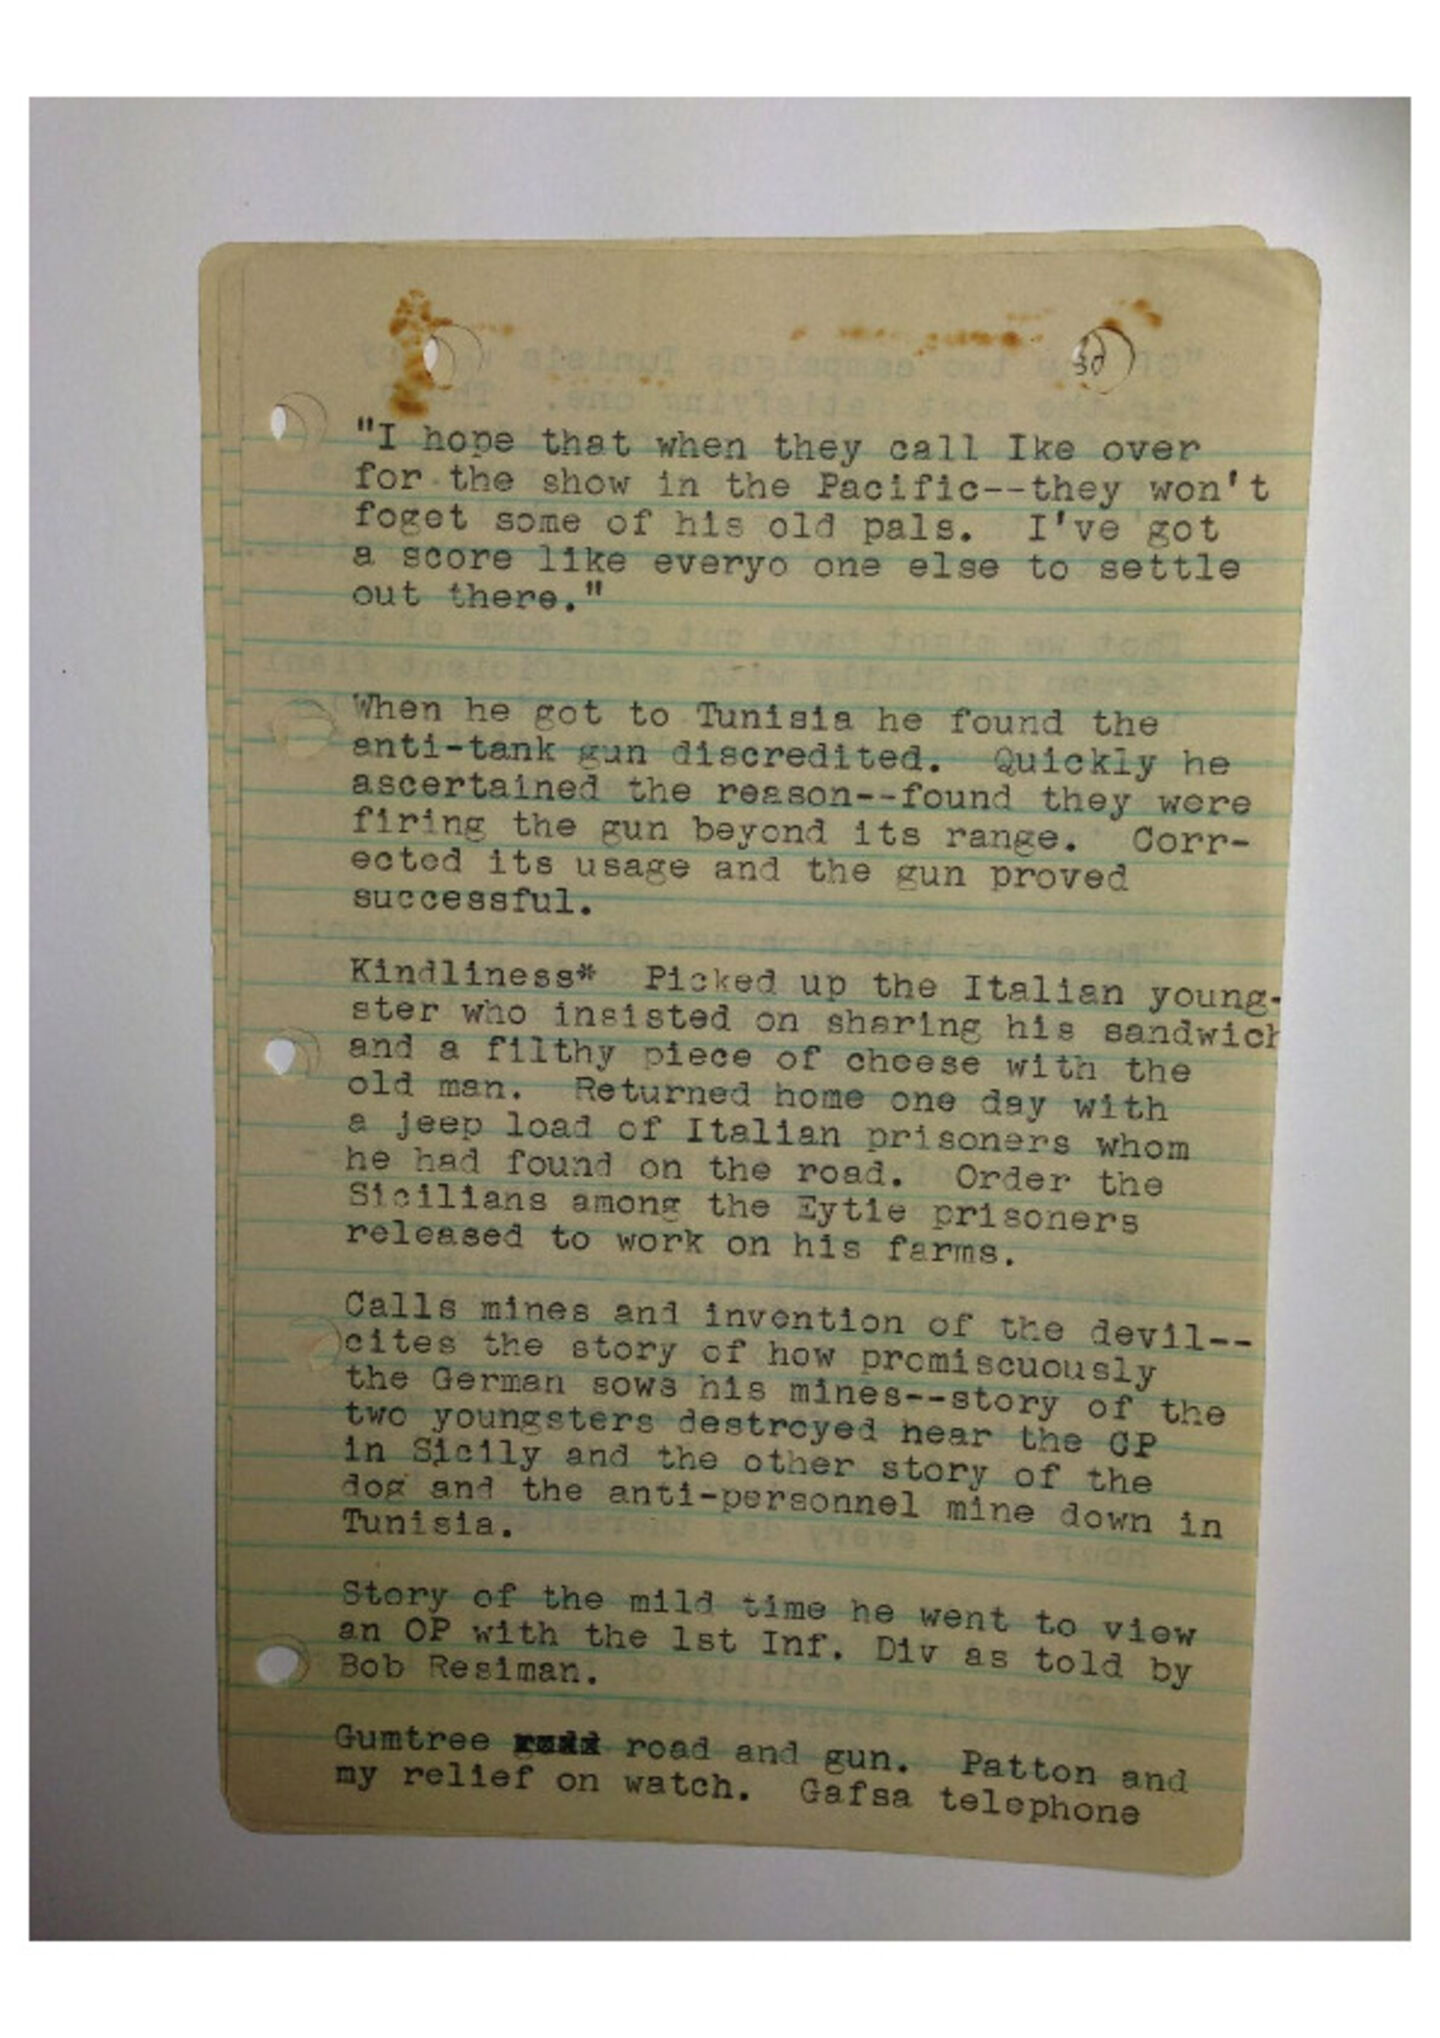 30
"I hope that when they call Ike over
for the show in the Pacific--they won't
foget some of his old pals. I've got
a score like everyo one else to settle
out there."
When he got to Tunisia he found the
anti-tank gun discredited. Quickly he
ascertained the reason--found they were
firing the gun beyond its range. Corr-
ected its usage and the gun proved
successful.
Kindliness* Picked up the Italian young-
ster who insisted on sharing his sandwich
and a filthy piece of cheese with the
old man. Returned home one day with
a jeep load of Italian prisoners whom
he had found on the road. Order the
Sicilians among the Eytie prisoners
released to work on his farms.
Calls mines and invention of the devil--
cites the story of how promiscuously
the German sows his mines--story of the
two youngsters destroyed near the CP
in Sicily and the other story of the
dog and the anti-personnel mine down in
Tunisia.
Story of the mild time he went to view
an OP with the 1st Inf. Div as told by
Bob Resiman.
Gumtree road and gun. Patton and
my relief on watch. Gafsa telephone